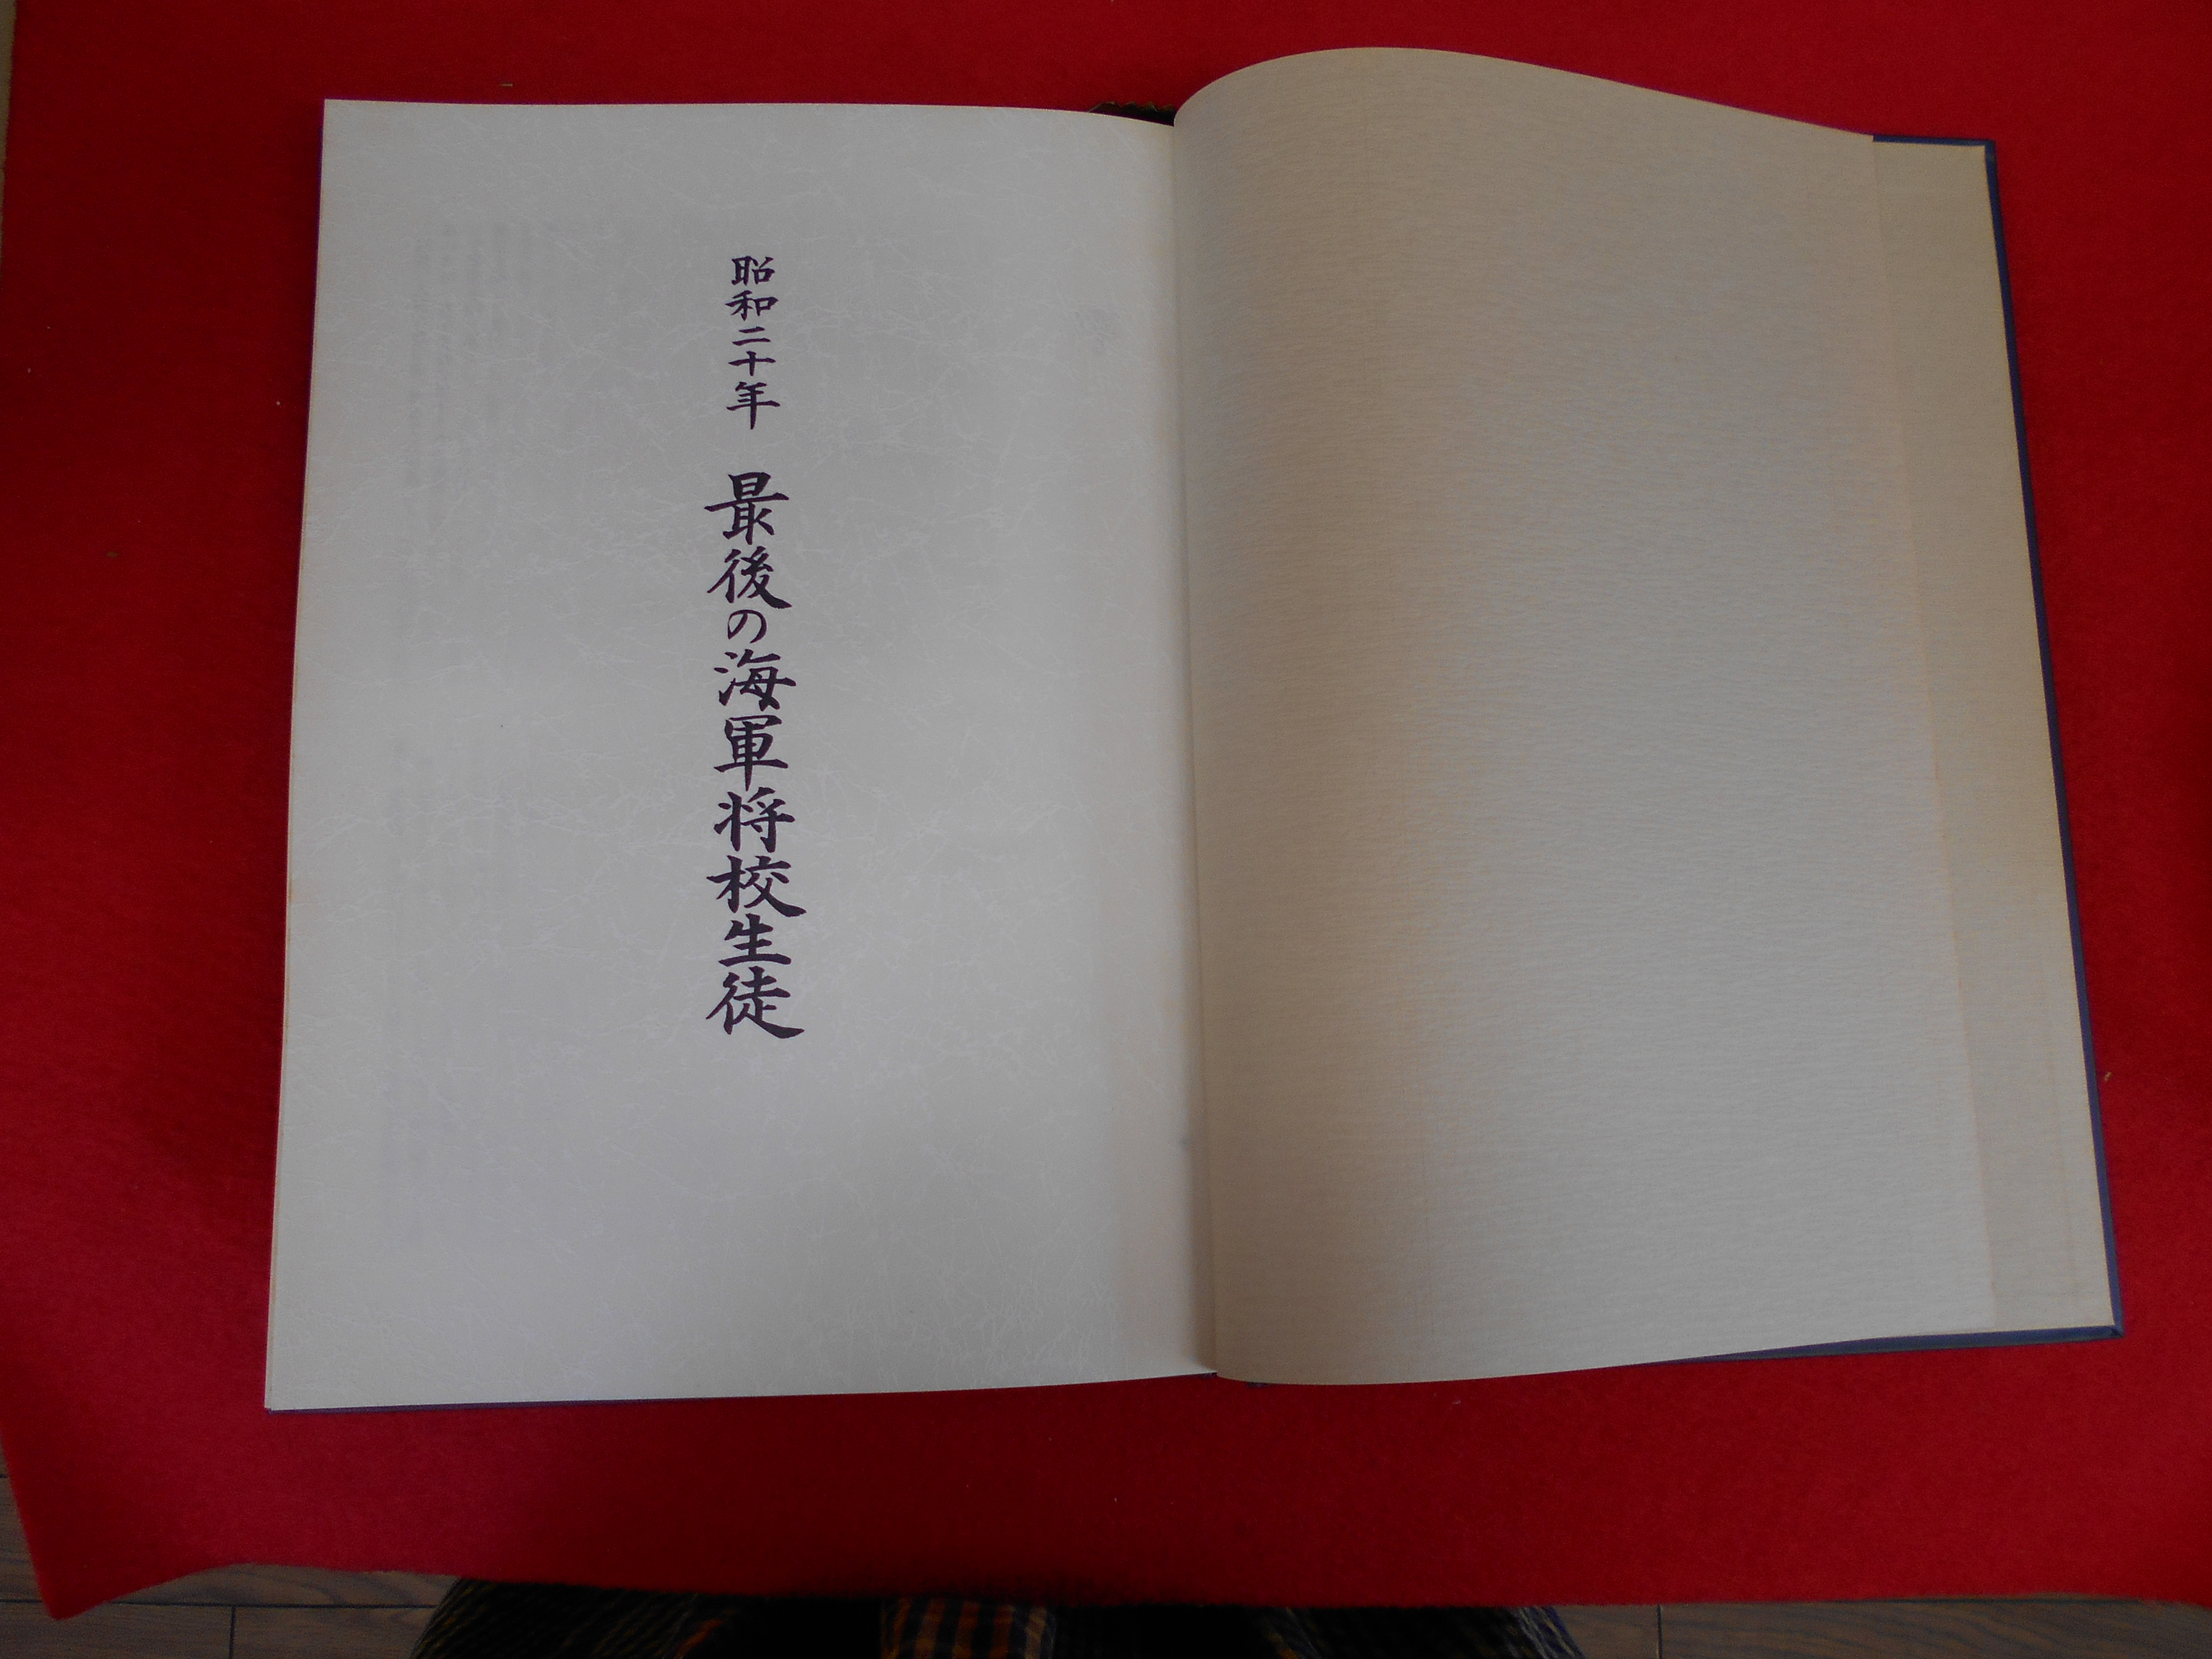 昭和二十年 最後の海軍将校生徒